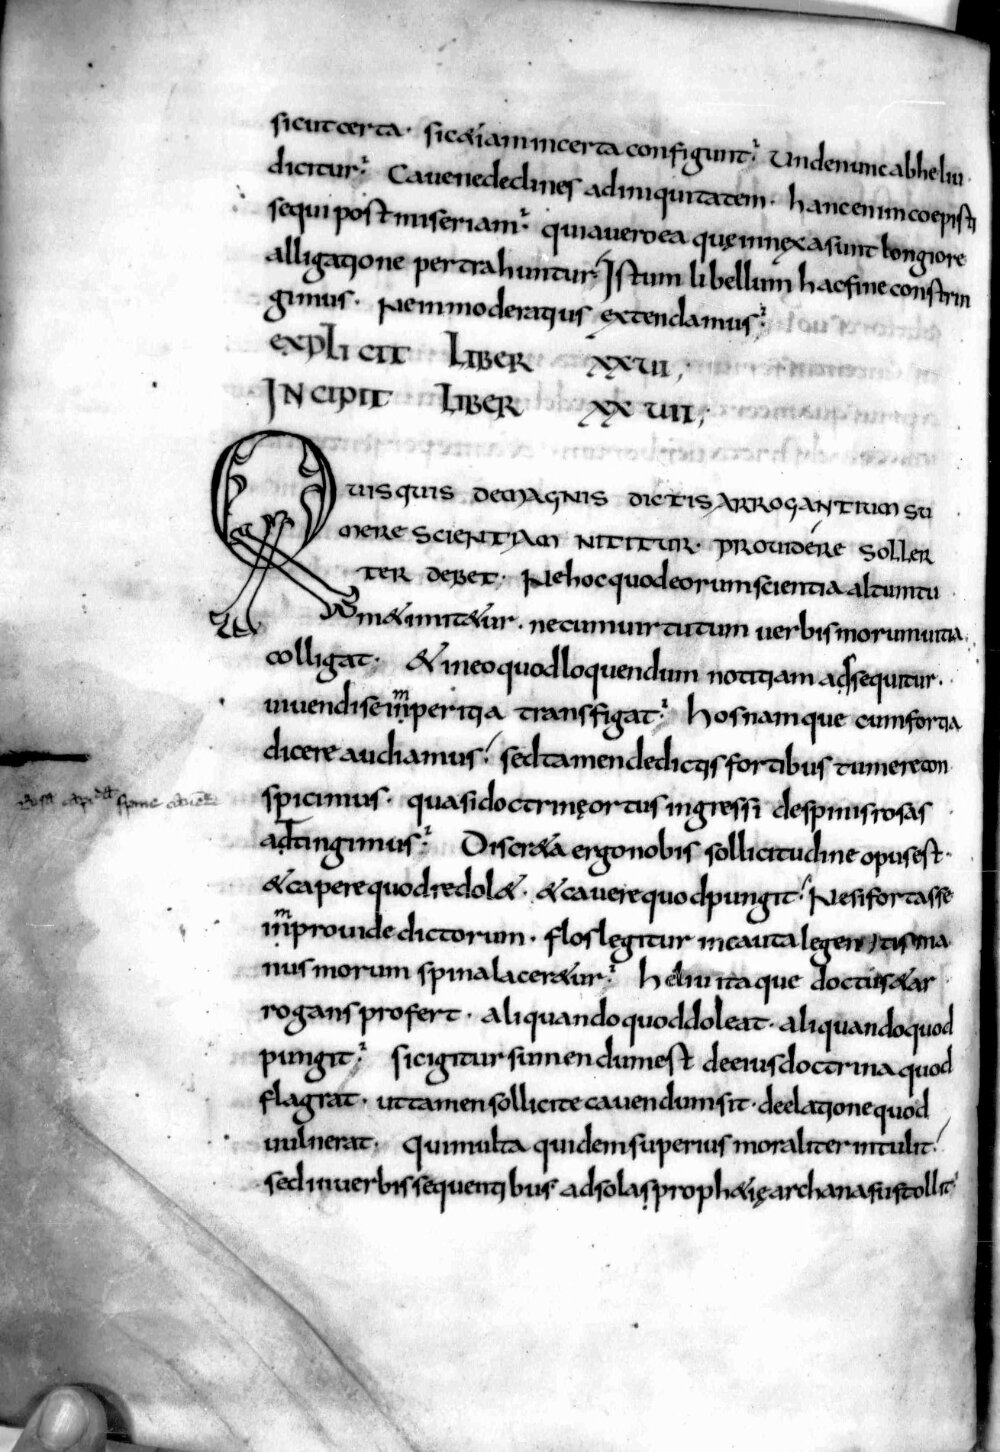 sicut certa · sic & iam incerta configunt · Unde nunc ab heliu
dicitur · Cave ne declines ad iniquitatem · hanc enim coepisti
sequi post miseriam · quia vero ea quę innęxa sunt longiore
alligatione pertrahuntur · Istum libellum hac fine constrin
gimus · Ne inmoderatius extendamus ·
EXPLICIT LIBER XXVI ;
INCIPIT LIBER XXVII ;
QUISQUIS DE MAGNIS DICTIS ARROGANTIUM SU
MERE SCIENTIAM NITITUR · PROVIDERE SOLLER
TER DEBET · Ne hoc quod eorum scientia altum tu
m & imit&ur · ne cum virtutum verbis morum vitia
colligat · & in eo quod loquendum notitiam adsequitur ·
vivendi se inperitia transfigat · hos namque cum fortia
dicere audiamus · sed tamen de dictis fortibus tumere con
spicimus · quasi doctrinę ortus ingressi de spinis rosas
adtingimus · Discr&a ergo nobis sollicitudine opus est ·
& capere quod redol& · & cavere quod pungit · Ne si fortasse
inprovide dictorum · flos legitur incauta legentis ma
nus morum spina lacer&ur · heliu itaque doctus & ar
rogans profert · aliquando quod doleat · aliquando quod
pungit · sic igitur sumendum est de eius doctrina quod
flagrat · ut tamen sollicite cavendum sit · de elatione quod
vulnerat · qui multa quidem superius moraliter intulit ·
sed in verbis sequentibus ad solas proph&ię archana sustollit ·